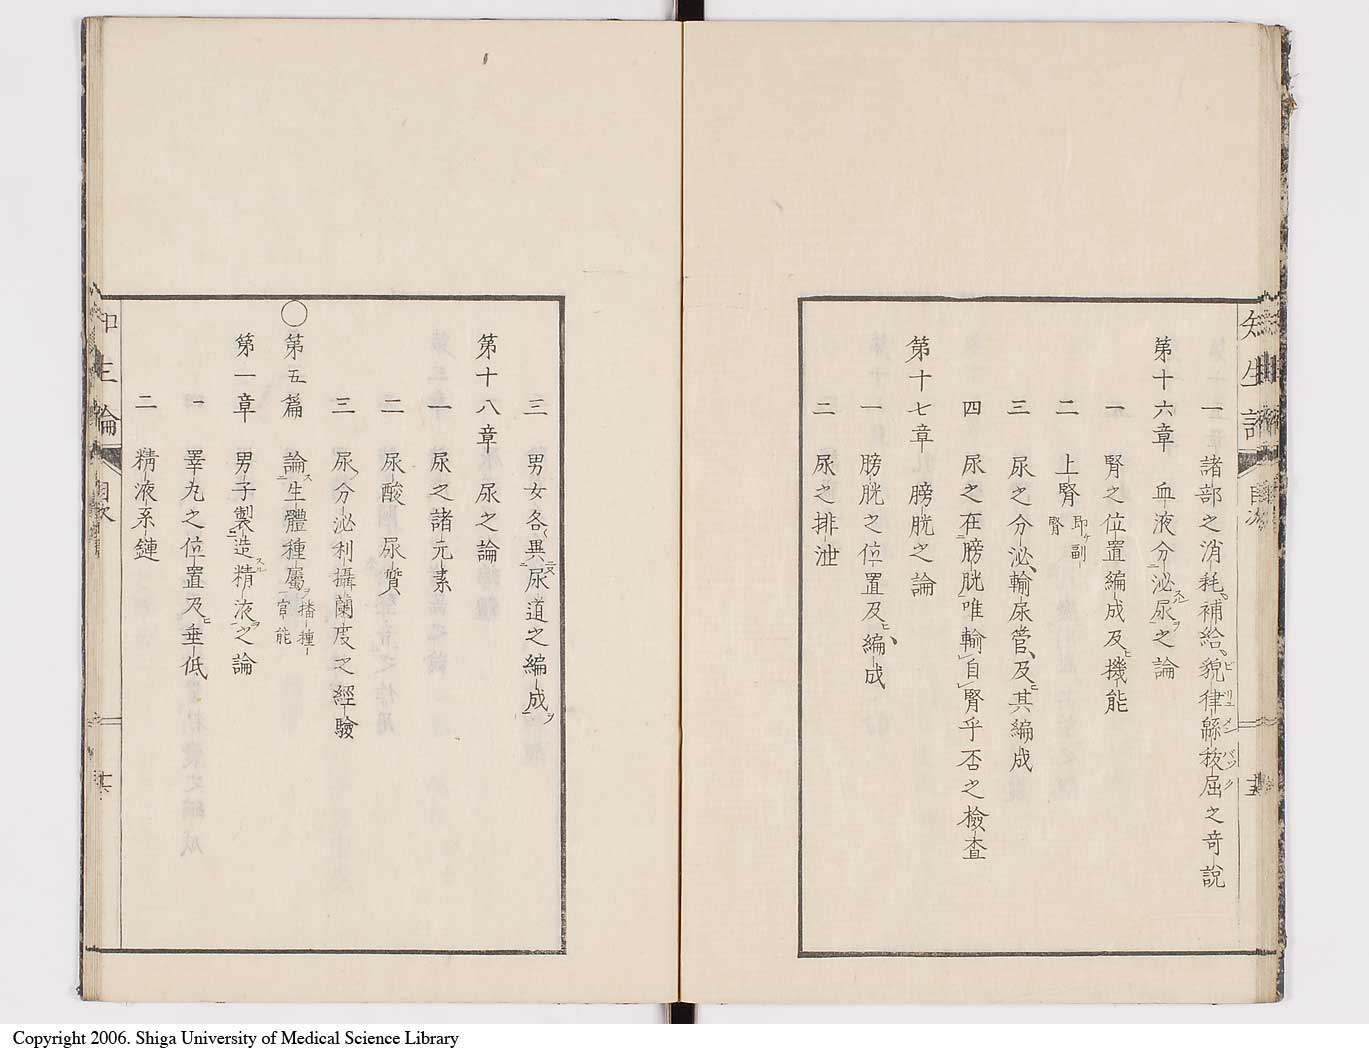 一 諸部之消耗補給貎律緜抜屈之奇説
第十六章 血液分泌尿之論
一 腎之位置編成及機能
二 上腎 即副腎
三 尿之分泌、輸尿管、及其編成
四 尿之在膀胱唯輸自腎乎否之檢査
第十七章 膀胱之論
一 膀胱之位置及編成
二 尿之排泄
三 男女各異尿道之編成
第十八章 尿之論
一 尿之諸元素
二 尿酸尿質
三 尿分泌利攝蘭度之經驗
○第五篇 論生體種屬播種官能
第一章 男子製造精液之論
一 睾丸之位置及垂低
二 精液系鏈
Copyright 2006. Shiga University of Medical Science Library